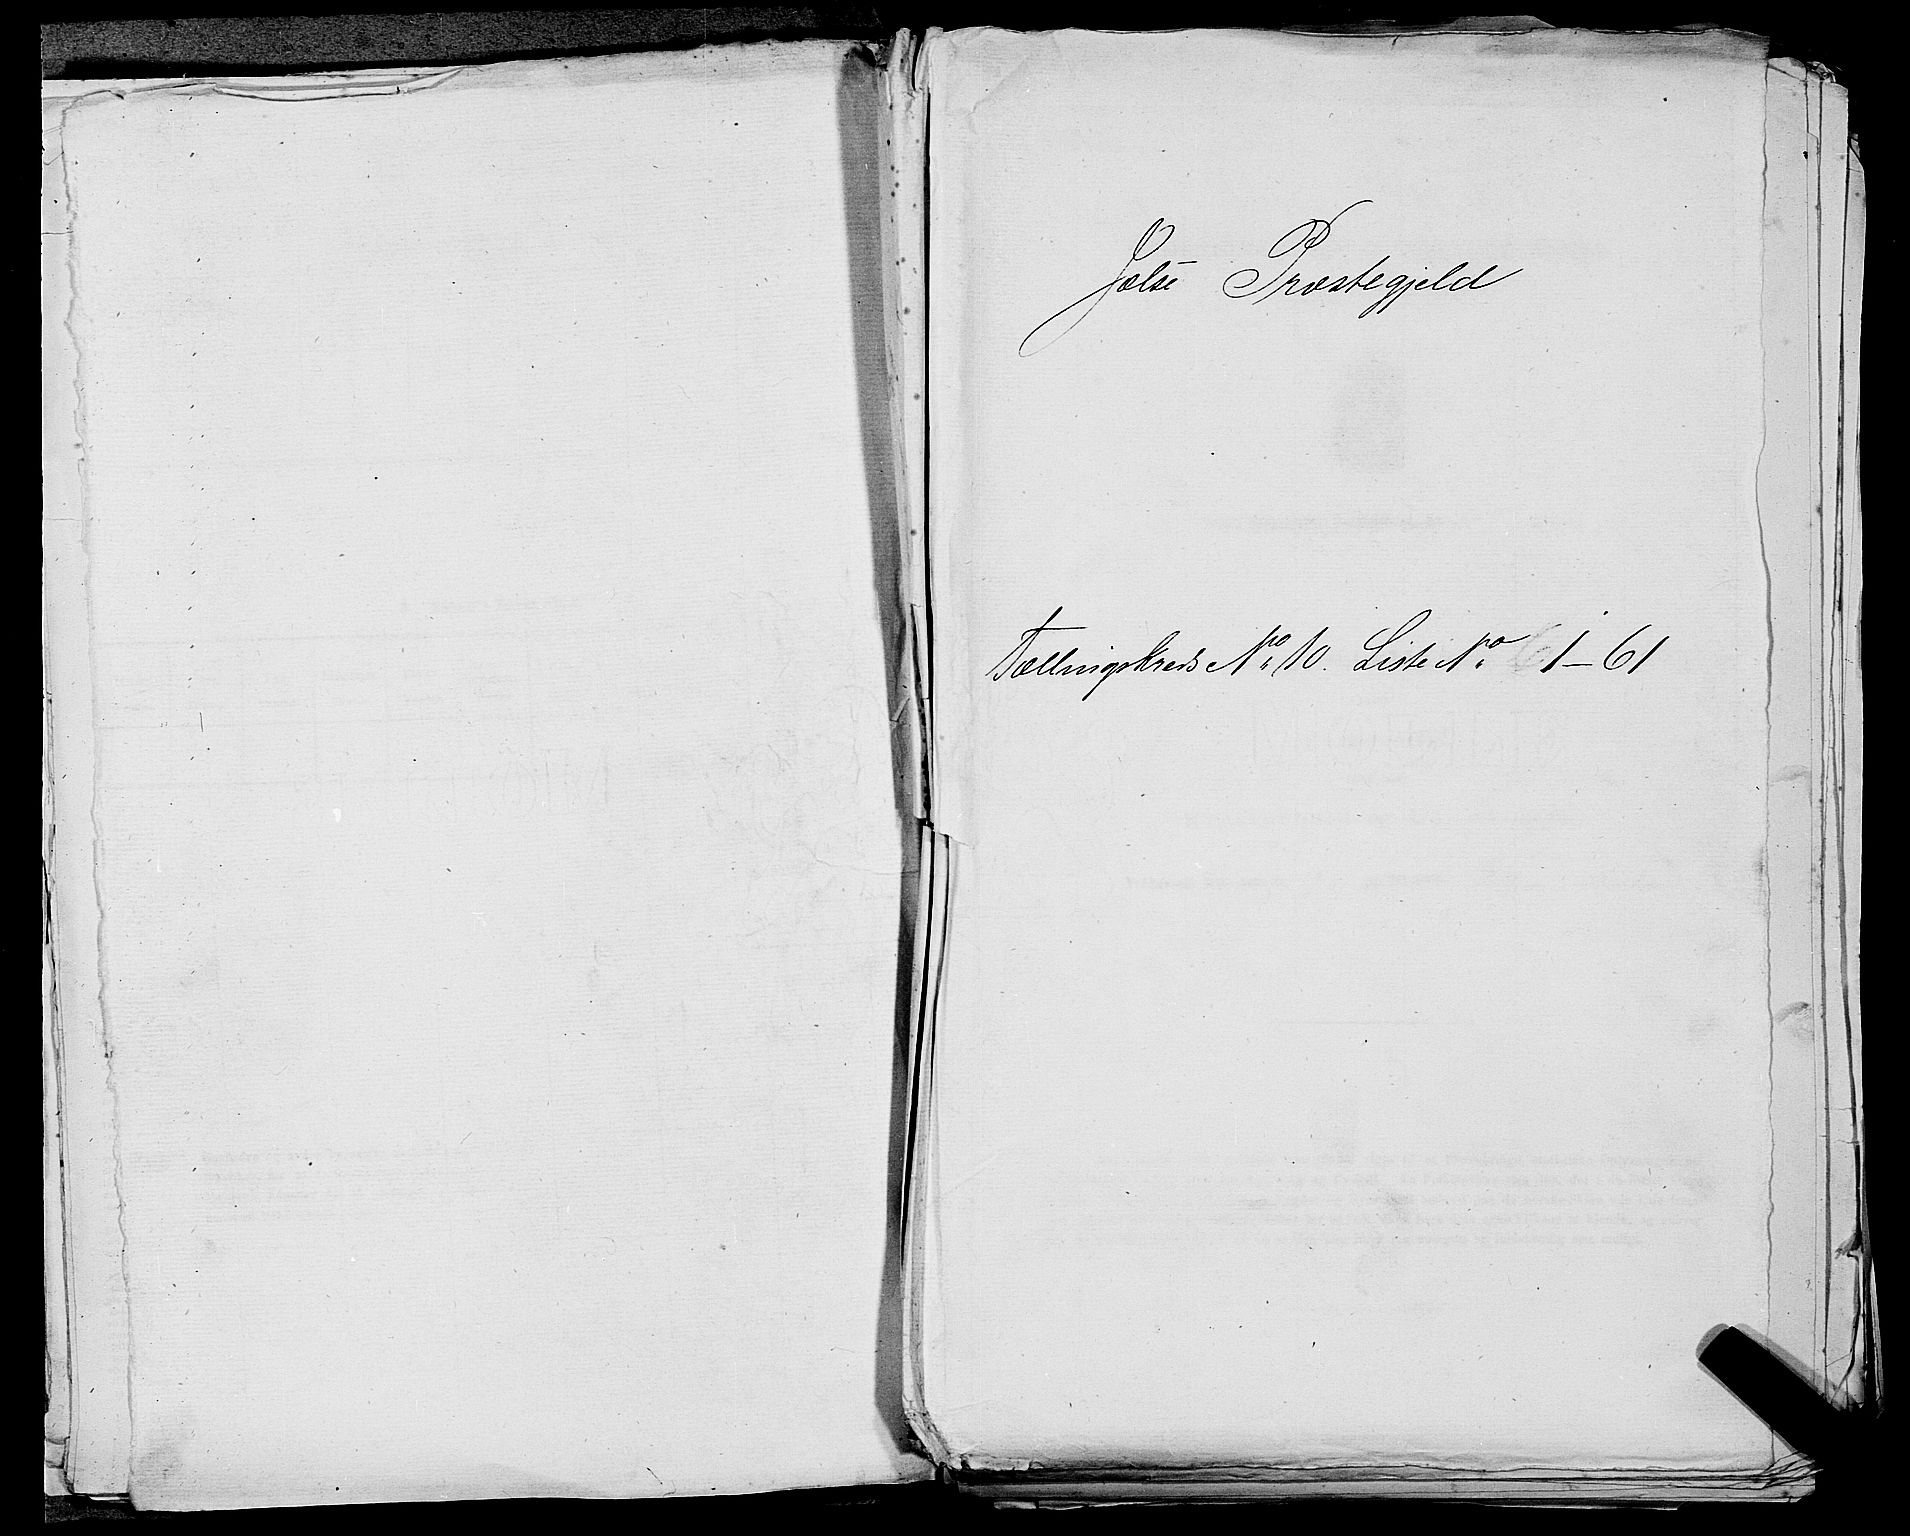 Jælse Præstegjeld
Tællingskreds No. 10. Liste No. 1–61